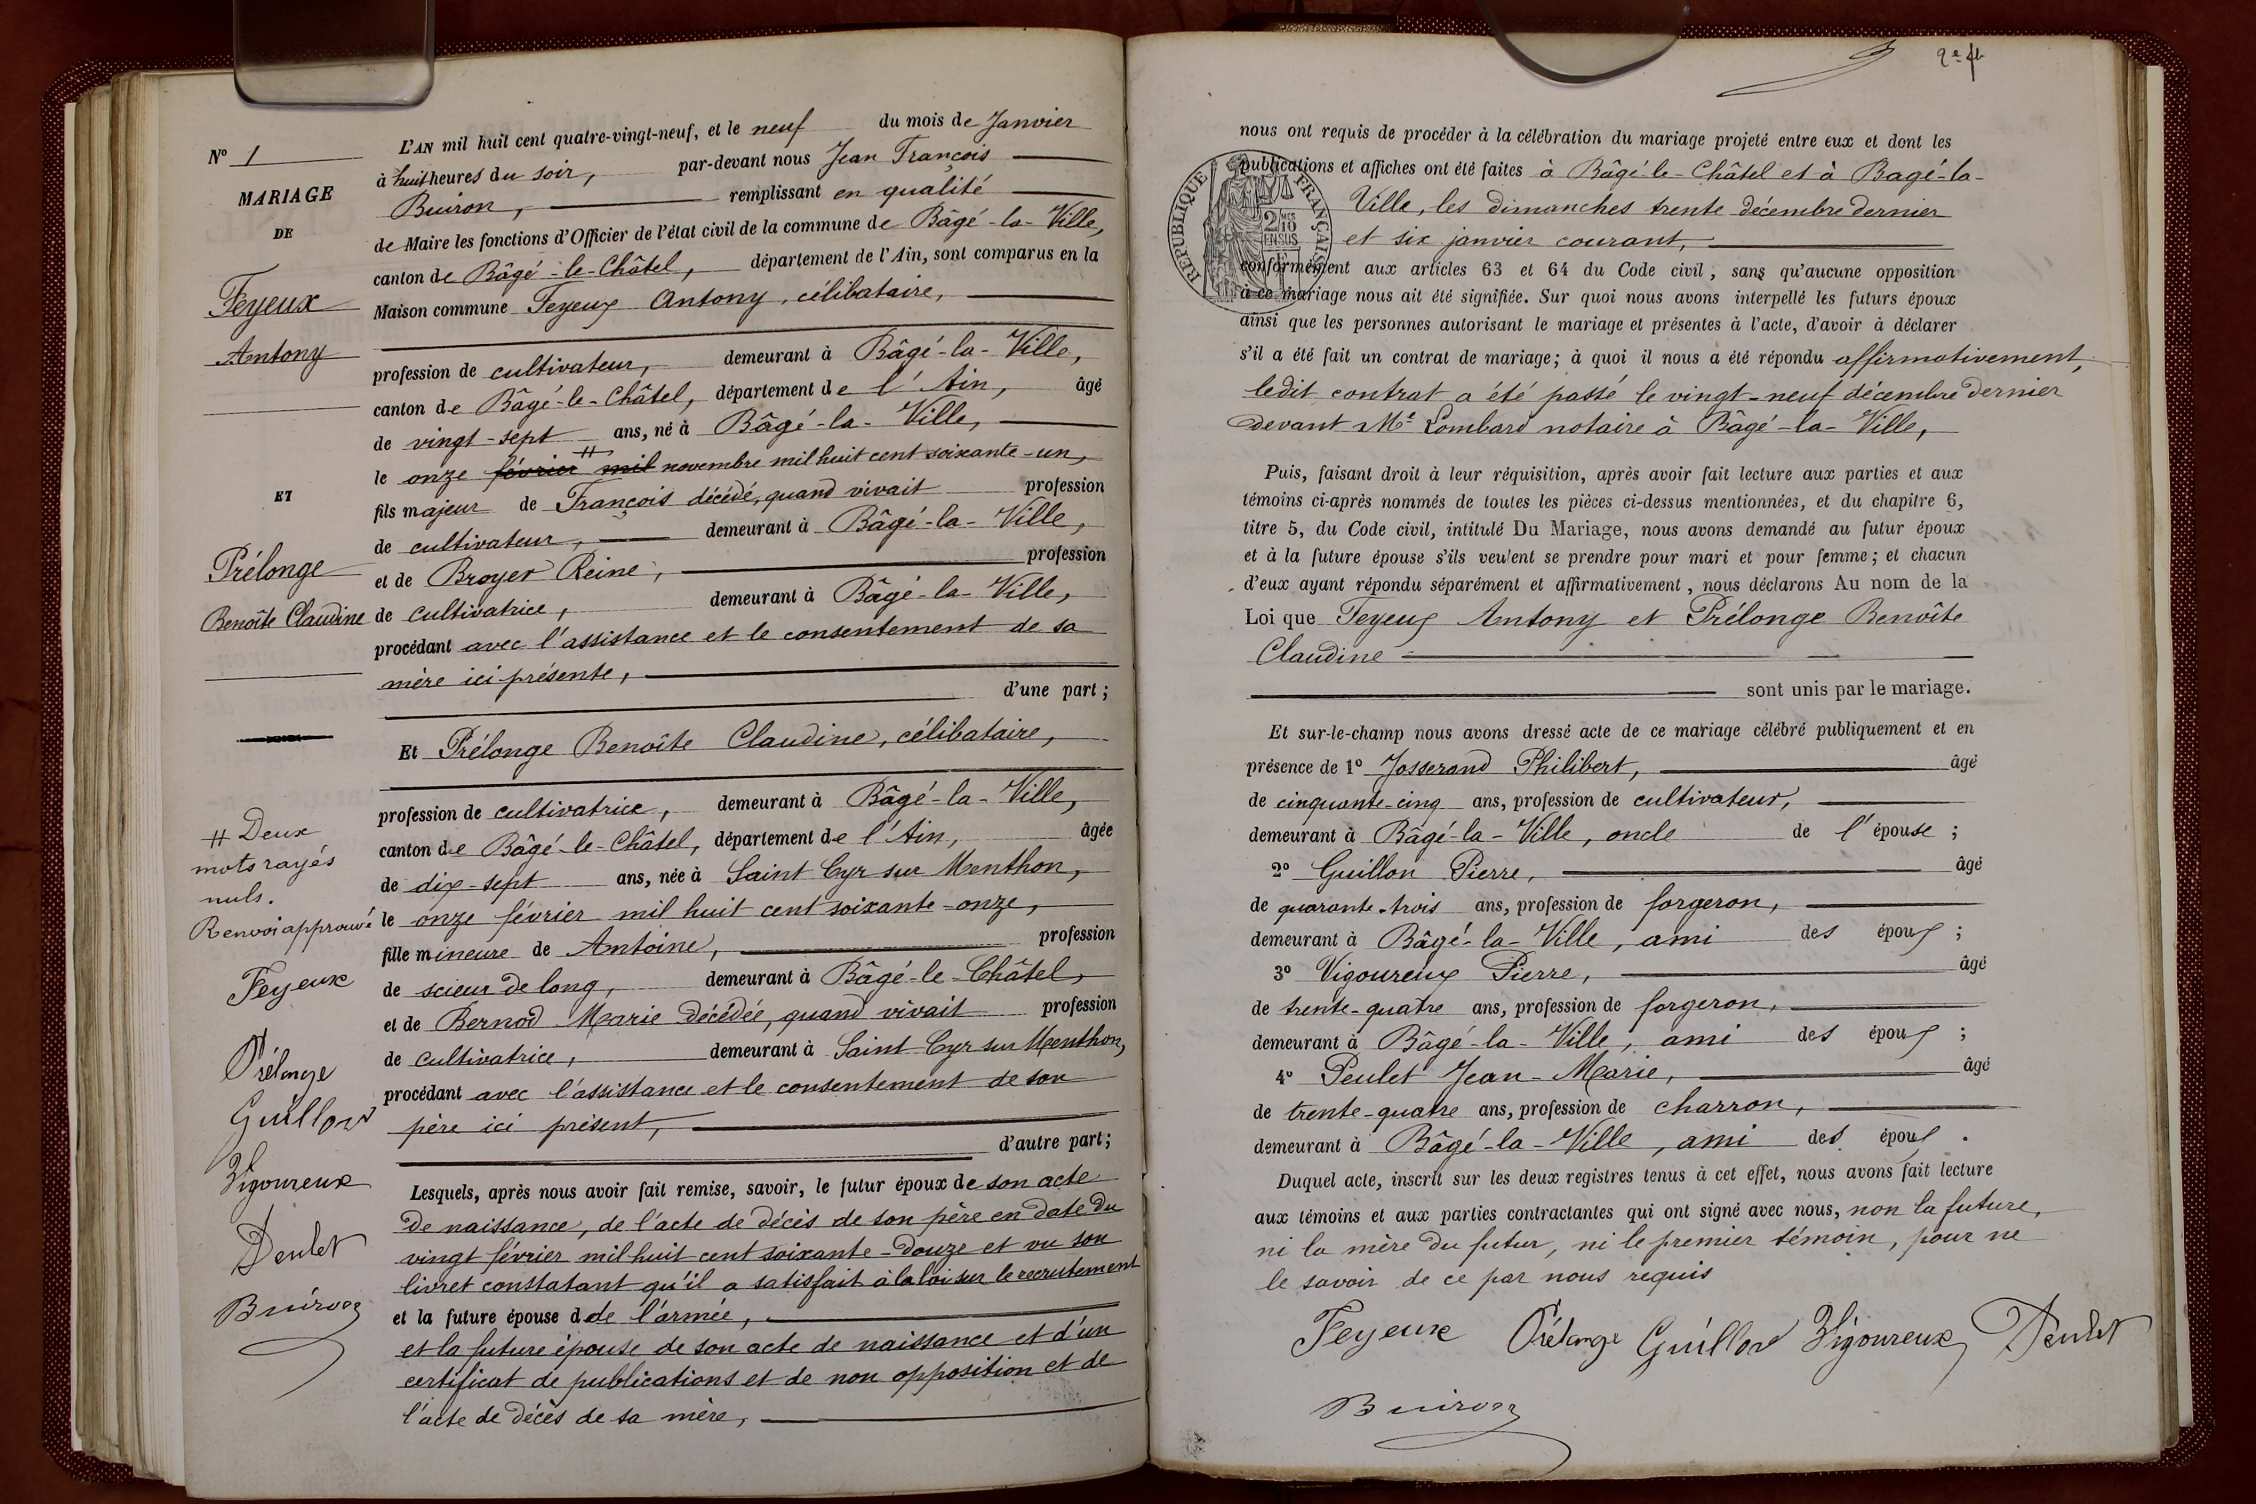 N° 1
MARIAGE
DE
Feyeux
Antony
ET
Prélonge
Benoîte Claudine
# Deux
mots rayés
nuls.
Renvoi approuvé
Feyeux
Prélonge
Guillon
Vigoureux
Peulet
Buiron
L'AN mil huit cent quatre-vingt-neuf, et le neuf du mois de Janvier
à huit heures du soir, par-devant nous Jean François
Buiron, remplissant en qualité
de Maire les fonctions d'Officier de l'état civil de la commune de Bâgé-la-Ville,
canton de Bâgé-le-Châtel, département de l'Ain, sont comparus en la
Maison commune Feyeux Antony, célibataire,
profession de cultivateur, demeurant à Bâgé-la-Ville,
canton de Bâgé-le-Châtel, département de l'Ain, âgé
de vingt-sept ans, né à Bâgé-la-Ville,
le onze février mil # novembre mil huit cent soixante-un,
fils majeur de François décédé, quand vivait profession
de cultivateur, demeurant à Bâgé-la-Ville,
et de Broyer Reine, profession
de cultivatrice, demeurant à Bâgé-la-Ville,
procédant avec l'assistance et le consentement de sa
mère ici présente,
d'une part;
Et Prélonge Benoîte Claudine, célibataire,
profession de cultivatrice, demeurant à Bâgé-la-Ville,
canton de Bâgé-le-Châtel, département de l'Ain, âgée
de dix-sept ans, née à Saint Cyr sur Menthon,
le onze février mil huit cent soixante-onze,
fille mineure de Antoine, profession
de scieur de long, demeurant à Bâgé-le-Châtel,
et de Bernod Marie décédée, quand vivait profession
de cultivatrice, demeurant à Saint Cyr sur Menthon,
procédant avec l'assistance et le consentement de son
père ici présent,
d'autre part;
Lesquels, après nous avoir fait remise, savoir, le futur époux de son acte
de naissance, de l'acte de décès de son père en date du
vingt février mil huit cent soixante-douze et vu son
livret constatant qu'il a satisfait à la loi sur le recrutement
et la future épouse d de l'armée,
et la future épouse de son acte de naissance et d'un
certificat de publications et de non opposition et de
l'acte de décès de sa mère,
2e f
nous ont requis de procéder à la célébration du mariage projeté entre eux et dont les
publications et affiches ont été faites à Bâgé-le-Châtel et à Bagé-la-
Ville, les dimanches trente décembre dernier
et six janvier courant,
RÉPUBLIQUE FRANÇAISE
2 MES 10
EN SUS
conformément aux articles 63 et 64 du Code civil, sans qu'aucune opposition
à ce mariage nous ait été signifiée. Sur quoi nous avons interpellé les futurs époux
ainsi que les personnes autorisant le mariage et présentes à l'acte, d'avoir à déclarer
s'il a été fait un contrat de mariage; à quoi il nous a été répondu affirmativement,
ledit contrat a été passé le vingt-neuf décembre dernier
devant Me Lombard notaire à Bâgé-la-Ville,
Puis, faisant droit à leur réquisition, après avoir fait lecture aux parties et aux
témoins ci-après nommés de toutes les pièces ci-dessus mentionnées, et du chapitre 6,
titre 5, du Code civil, intitulé Du Mariage, nous avons demandé au futur époux
et à la future épouse s'ils veulent se prendre pour mari et pour femme; et chacun
d'eux ayant répondu séparément et affirmativement, nous déclarons Au nom de la
Loi que Feyeux Antony et Prélonge Benoîte
Claudine
sont unis par le mariage.
Et sur-le-champ nous avons dressé acte de ce mariage célébré publiquement et en
présence de 1° Josserand Philibert, âgé
de cinquante-cinq ans, profession de cultivateur,
demeurant à Bâgé-la-Ville, oncle de l'épouse;
2° Guillon Pierre, âgé
de quarante-trois ans, profession de forgeron,
demeurant à Bâgé-la-Ville, ami des époux;
3° Vigoureux Pierre, âgé
de trente-quatre ans, profession de forgeron,
demeurant à Bâgé-la-Ville, ami des époux;
4° Peulet Jean-Marie, âgé
de trente-quatre ans, profession de charron,
demeurant à Bâgé-la-Ville, ami des époux.
Duquel acte, inscrit sur les deux registres tenus à cet effet, nous avons fait lecture
aux témoins et aux parties contractantes qui ont signé avec nous, non la future,
ni la mère du futur, ni le premier témoin, pour ne
le savoir de ce par nous requis
Feyeux Prélonge Guillon Vigoureux Peulet
Buiron